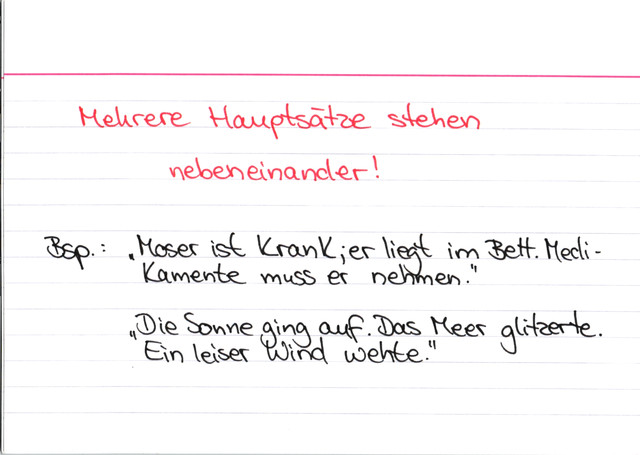 Mehrere Hauptsätze stehen
nebeneinander!
Bsp.: „Moser ist krank; er liegt im Bett. Medi-
kamente muss er nehmen."
„Die Sonne ging auf. Das Meer glitzerte.
Ein leiser Wind wehte."